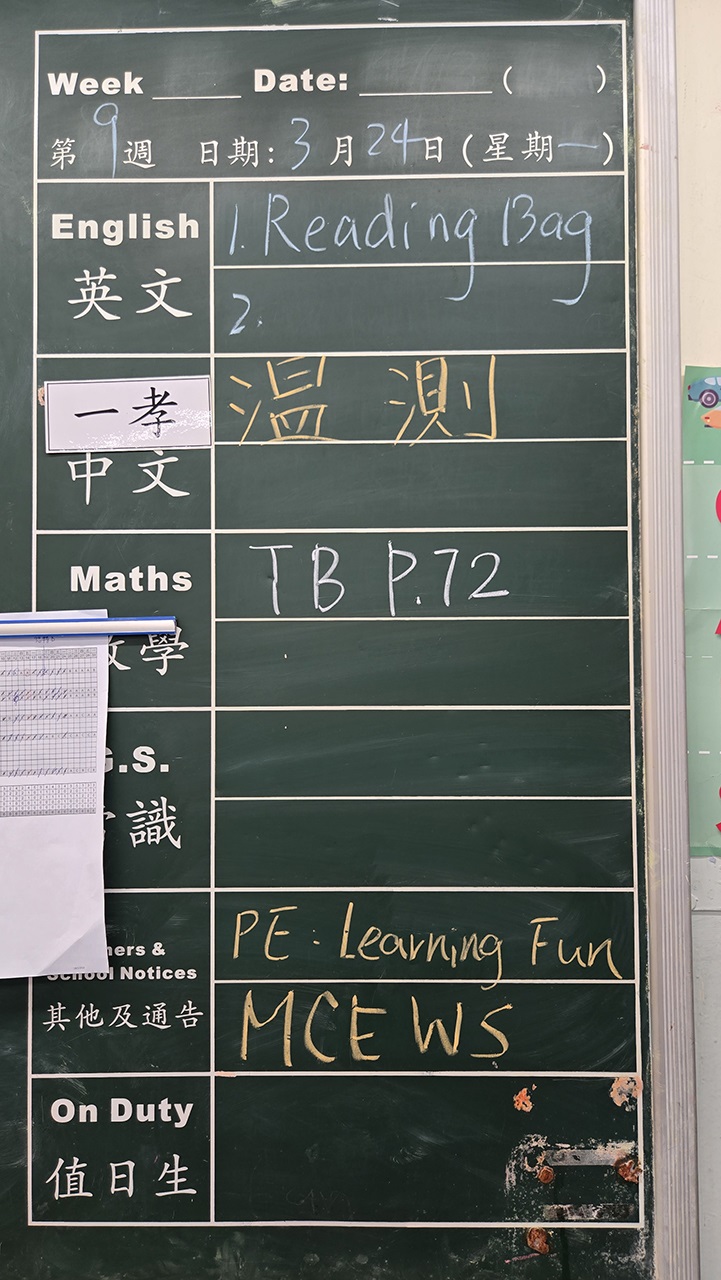 Week ____ Date: ______ ( )
第9週 日期: 3月24日(星期一)
English
英文
1. Reading Bag
2.
一孝
中文
温 測
Maths
學
TB P.72
G.S.
識
ners &
School Notices
其他及通告
PE: Learning Fun
MCE WS
On Duty
值日生